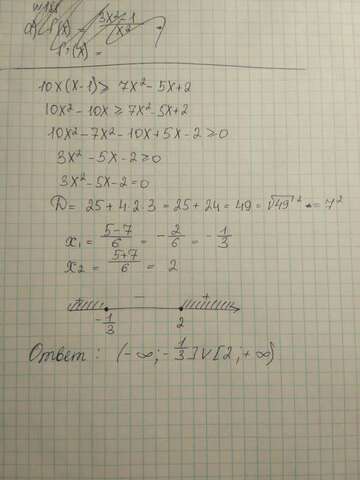 10x(x-1) ≥ 7x² - 5x + 2
10x² - 10x ≥ 7x² - 5x + 2
10x² - 7x² - 10x + 5x - 2 ≥ 0
3x² - 5x - 2 ≥ 0
3x² - 5x - 2 = 0
D = 25 + 4·2·3 = 25 + 24 = 49 = √49² = 7²
x₁ = (5-7)/6 = -2/6 = -1/3
x₂ = (5+7)/6 = 2
+ - +
-1/3 2
Ответ: (-∞; -1/3] ∨ [2; +∞)